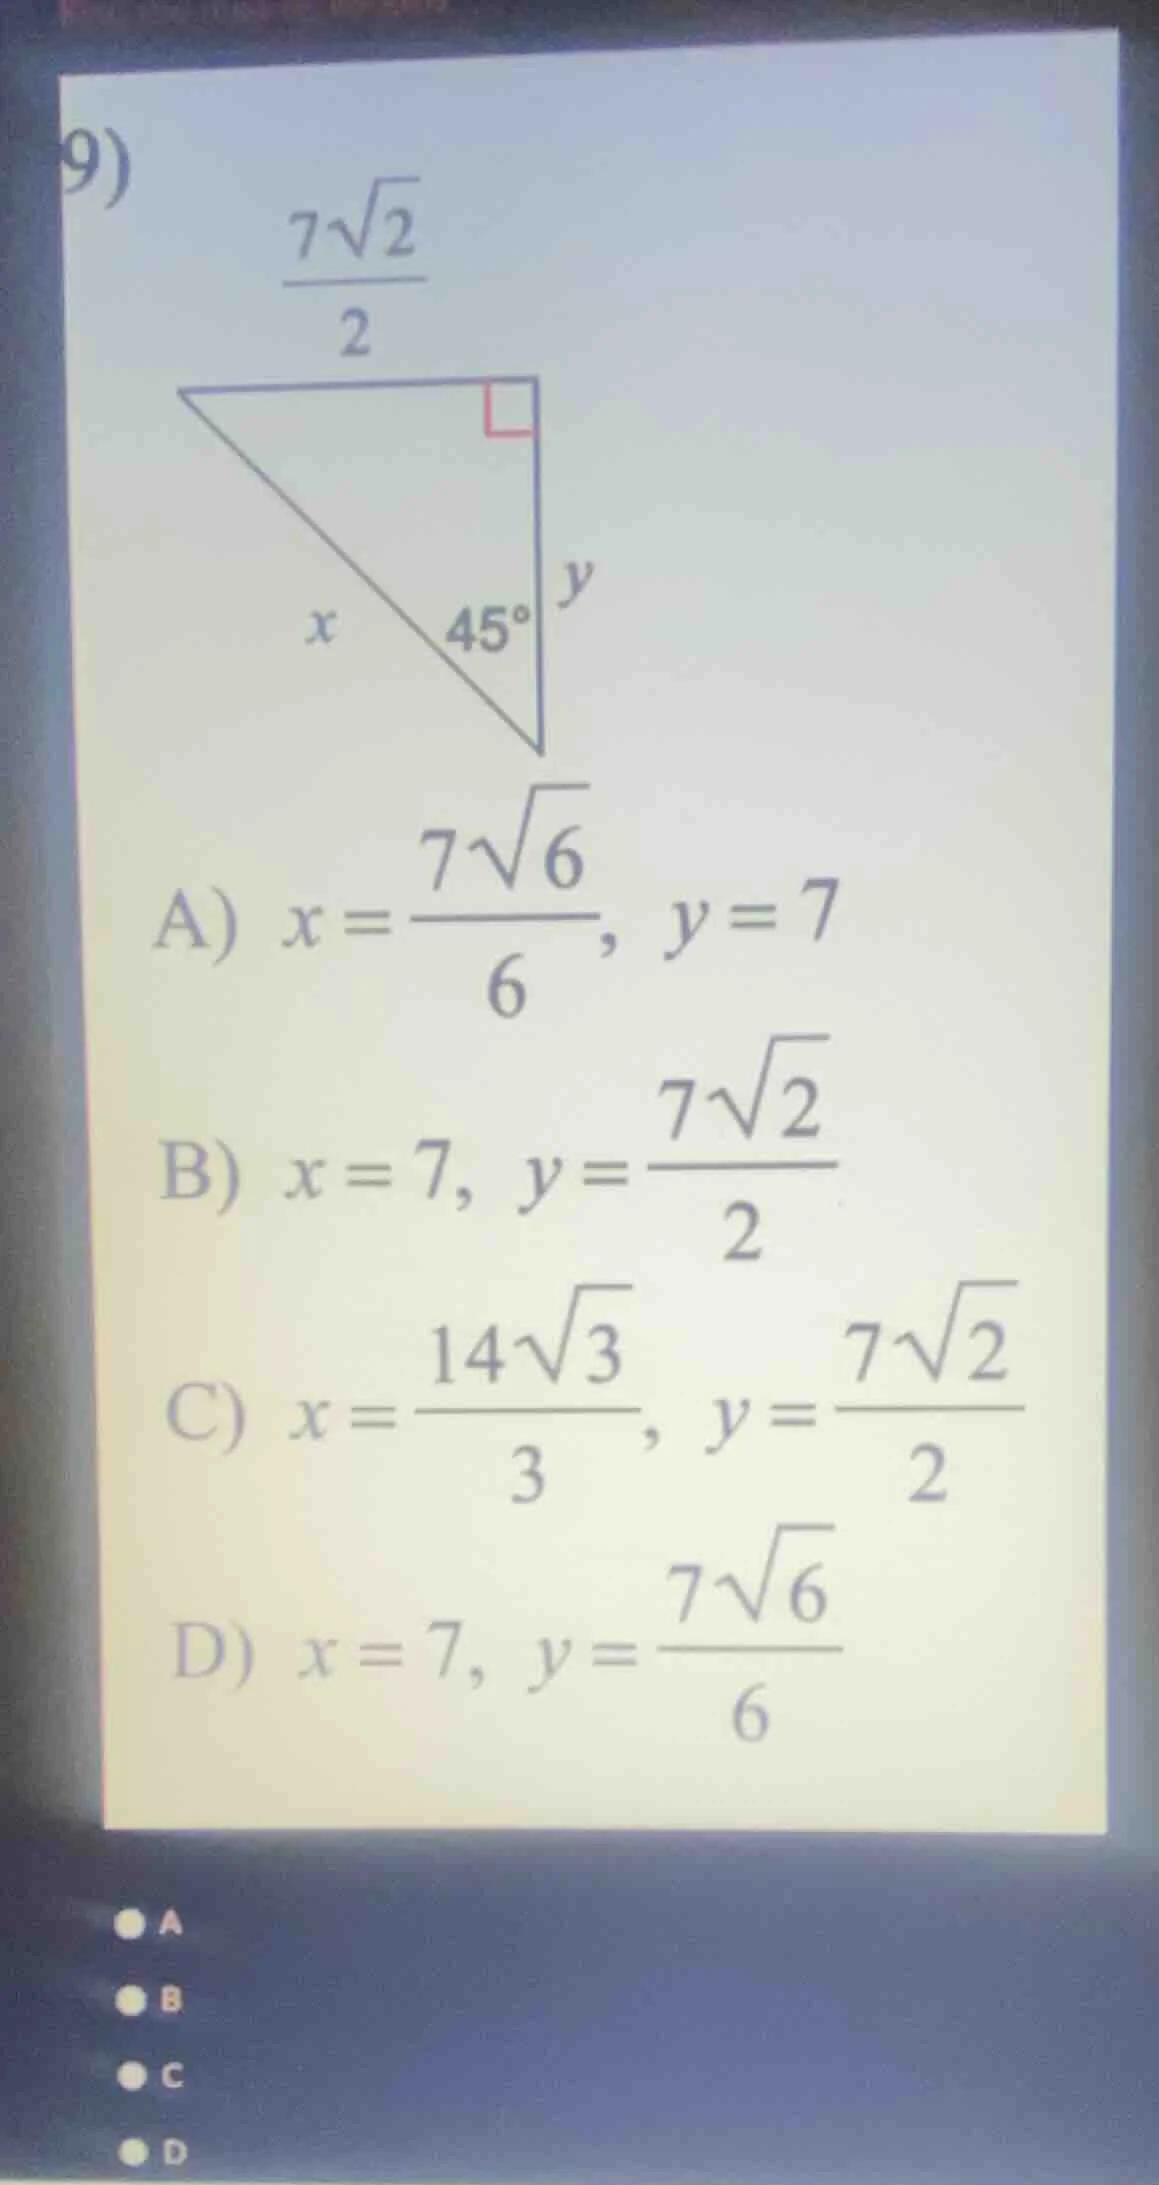 9)
7√2
2
x
45°
y
A) x = 7√6/6, y = 7
B) x = 7, y = 7√2/2
C) x = 14√3/3, y = 7√2/2
D) x = 7, y = 7√6/6
A
B
C
D